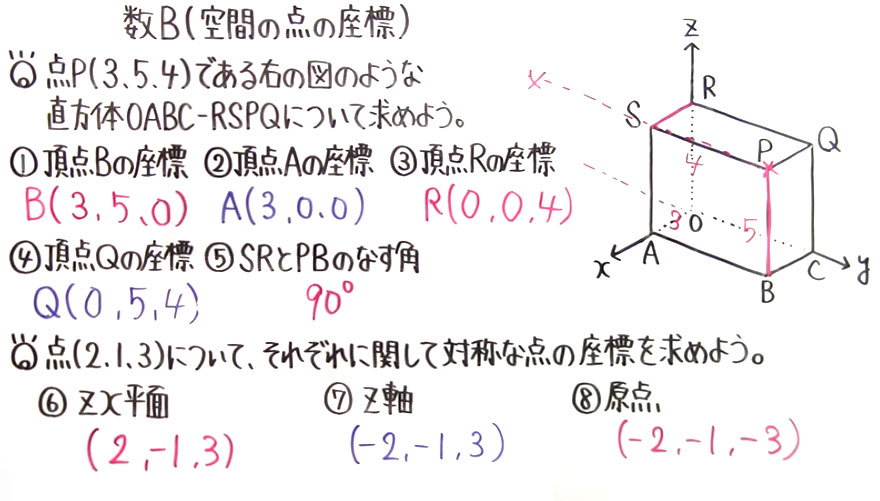 数B(空間の点の座標)
点P(3.5.4)である右の図のような
直方体OABC-RSPQについて求めよう。
①頂点Bの座標 ②頂点Aの座標 ③頂点Rの座標
B(3,5,0) A(3,0.0) R(0,0,4)
④頂点Qの座標 ⑤SRとPBのなす角
Q(0,5,4) 90°
点(2.1.3)について、それぞれに関して対称な点の座標を求めよう。
⑥ZX平面 ⑦Z軸 ⑧原点
(2,-1,3) (-2,-1,3) (-2,-1,-3)
z
R
S
P
Q
4
3
O
5
A
x
B
C
y